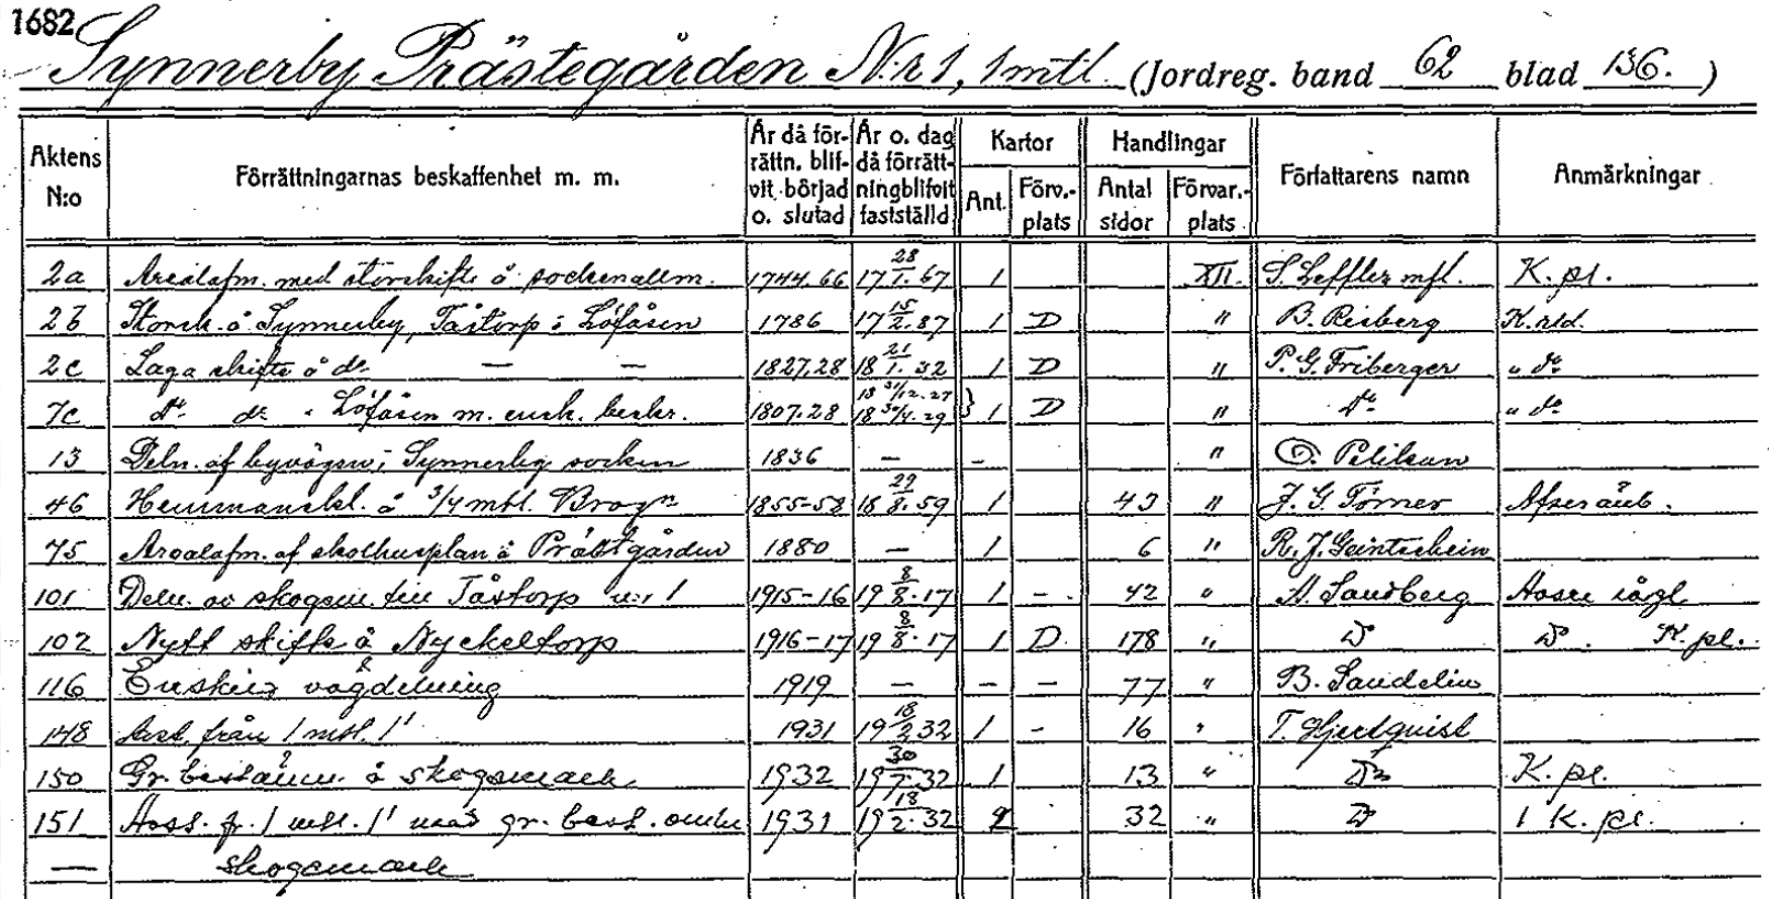 1682
Synnerby Prästegården Nr 1, 1 mtl. (Jordreg. band 62 blad 136.)
Aktens N:o Förrättningarnas beskaffenhet m. m. År då förrättn. blifvit börjad o. slutad År o. dag då förrättning blifvit fastställd Kartor Ant. Förv.-plats Handlingar Antal sidor Förvar.-plats Författarens namn Anmärkningar
2a Arealafm. med storskifte å sockenallm. 1744.66 17 28/1. 67 1 XII. S. Leffler mfl. K. pl.
2b Storsk. å Synnerby, Tåstorp o Löfåsen 1786 17 15/2. 87 1 D " B. Risberg K. rld.
2c Laga skifte å do — — 1827.28 18 21/1. 32 1 D " P. G. Friberger " do
7c do do " Löfåsen m. ensk. beskr. 1807.28 18 31/12. 27 18 30/4. 29 } 1 D " do " do
13 Deln. af byvägen i Synnerby socken 1836 — - " O. Pelikan
46 Hemmanskl. å 3/4 mtl. Brogn 1855-58 18 29/8. 59 1 43 " J. G. Törner
75 Arealafm. af skolhusplan å Prästgården 1880 — 1 6 " R. J.
101 Deln. av skogen till Tåstorp n:r 1 1915-16 19 8/8. 17 1 - 42 " A. Sandberg
102 Nytt skifte å Nyckeltorp 1916-17 19 8/8. 17 1 D 178 " Do Do. K. pl.
116 Enskild vägdelning 1919 — - - 77 " B. Sandelin
148 Avst. från 1 mtl. 1' 1931 19 18/2 32 1 - 16 " T. Hjertquist
150 Gr. bestämn. å skogsmark 1932 19 30/7. 32 1 13 " Do K. pl.
151 Avst. fr. 1 mtl. 1' med gr. best. omkr 1931 19 18/2. 32 2 32 " Do 1 K. pl.
— skogsmark